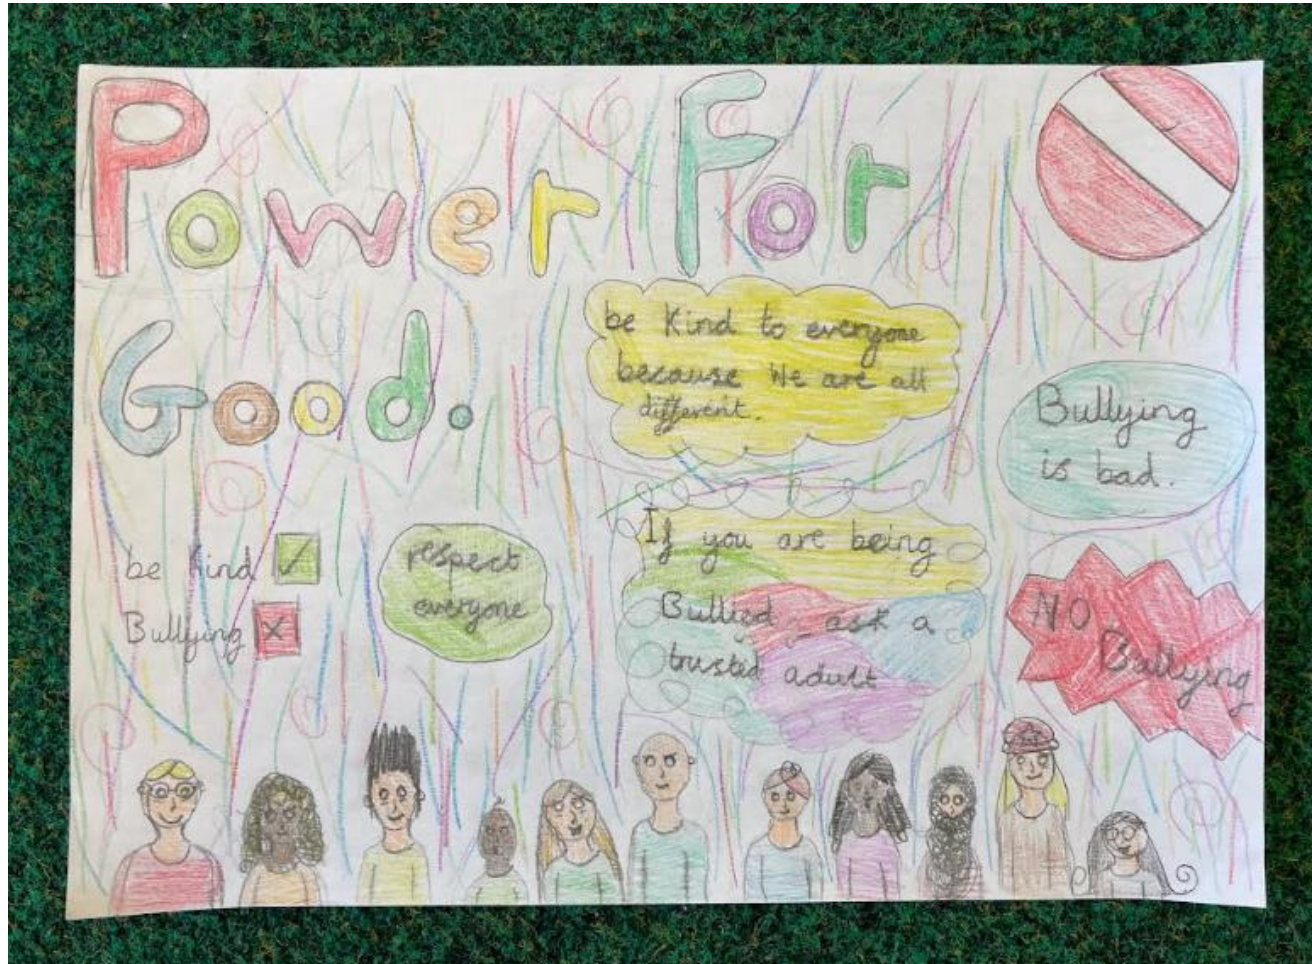 Power For
Good.
be Kind to everyone
because We are all
different.
Bullying
is bad.
be Kind
Bullying
respect
everyone
If you are being
Bullied, ask a
trusted adult
NO
Bullying